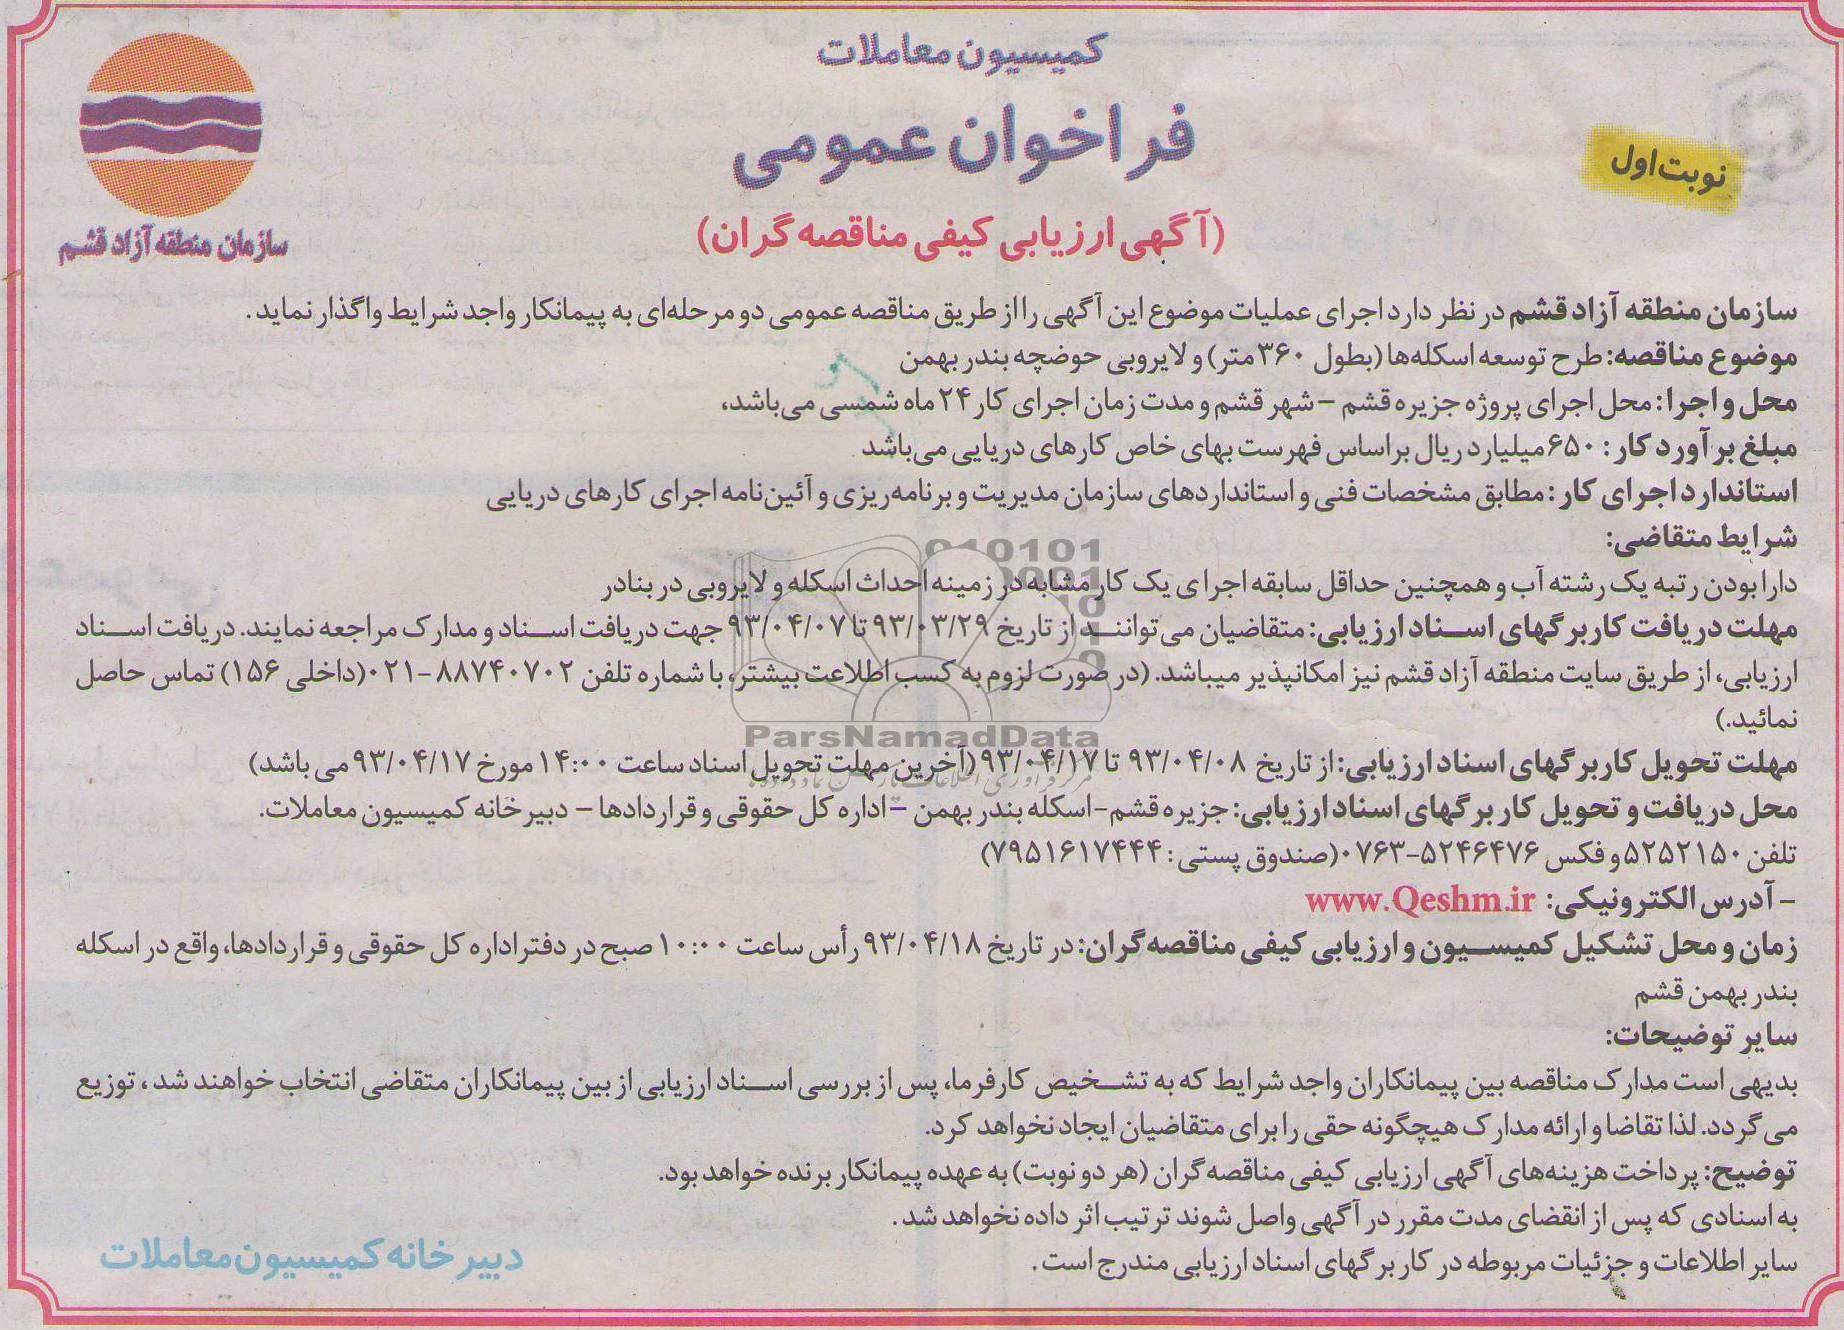 کمیسیون معاملات
فراخوان عمومی
نوبت اول
(آگهی ارزیابی کیفی مناقصه گران)
سازمان منطقه آزاد قشم
سازمان منطقه آزاد قشم در نظر دارد اجرای عملیات موضوع این آگهی را از طریق مناقصه عمومی دو مرحله‌ای به پیمانکار واجد شرایط واگذار نماید.
موضوع مناقصه: طرح توسعه اسکله‌ها (بطول ۳۶۰ متر) و لایروبی حوضچه بندر بهمن
محل و اجرا: محل اجرای پروژه جزیره قشم – شهر قشم و مدت زمان اجرای کار ۲۴ ماه شمسی می‌باشد،
مبلغ برآورد کار: ۶۵۰ میلیارد ریال براساس فهرست بهای خاص کارهای دریایی می‌باشد
استاندارد اجرای کار: مطابق مشخصات فنی و استانداردهای سازمان مدیریت و برنامه‌ریزی و آئین‌نامه اجرای کارهای دریایی
شرایط متقاضی:
دارا بودن رتبه یک رشته آب و همچنین حداقل سابقه اجرای یک کار مشابه در زمینه احداث اسکله و لایروبی در بنادر
مهلت دریافت کاربرگهای اسناد ارزیابی: متقاضیان می‌توانند از تاریخ ۹۳/۰۳/۲۹ تا ۹۳/۰۴/۰۷ جهت دریافت اسناد و مدارک مراجعه نمایند. دریافت اسناد
ارزیابی، از طریق سایت منطقه آزاد قشم نیز امکانپذیر میباشد. (در صورت لزوم به کسب اطلاعت بیشتر، با شماره تلفن ۸۸۷۴۰۷۰۲-۰۲۱ (داخلی ۱۵۶) تماس حاصل
نمائید.)
ParsNamadData
مهلت تحویل کاربرگهای اسناد ارزیابی: از تاریخ ۹۳/۰۴/۰۸ تا ۹۳/۰۴/۱۷ (آخرین مهلت تحویل اسناد ساعت ۱۴:۰۰ مورخ ۹۳/۰۴/۱۷ می باشد)
محل دریافت و تحویل کاربرگهای اسناد ارزیابی: جزیره قشم-اسکله بندر بهمن – اداره کل حقوقی و قراردادها – دبیرخانه کمیسیون معاملات.
تلفن ۵۲۵۲۱۵۰ و فکس ۵۲۴۶۴۷۶-۰۷۶۳ (صندوق پستی: ۷۹۵۱۶۱۷۴۴۴)
- آدرس الکترونیکی: www.Qeshm.ir
زمان و محل تشکیل کمیسیون و ارزیابی کیفی مناقصه گران: در تاریخ ۹۳/۰۴/۱۸ رأس ساعت ۱۰:۰۰ صبح در دفتر اداره کل حقوقی و قراردادها، واقع در اسکله
بندر بهمن قشم
سایر توضیحات:
بدیهی است مدارک مناقصه بین پیمانکاران واجد شرایط که به تشخیص کارفرما، پس از بررسی اسناد ارزیابی از بین پیمانکاران متقاضی انتخاب خواهند شد، توزیع
می گردد. لذا تقاضا و ارائه مدارک هیچگونه حقی را برای متقاضیان ایجاد نخواهد کرد.
توضیح: پرداخت هزینه‌های آگهی ارزیابی کیفی مناقصه گران (هر دو نوبت) به عهده پیمانکار برنده خواهد بود.
به اسنادی که پس از انقضای مدت مقرر در آگهی واصل شوند ترتیب اثر داده نخواهد شد.
سایر اطلاعات و جزئیات مربوطه در کاربرگهای اسناد ارزیابی مندرج است.
دبیرخانه کمیسیون معاملات